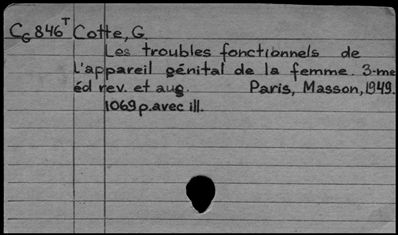 C6 846T Cotte, G.
Les troubles fonctionnels de
l'appareil génital de la femme. 3-me
éd rev. et aug. Paris, Masson, 1949.
1069 p. avec ill.